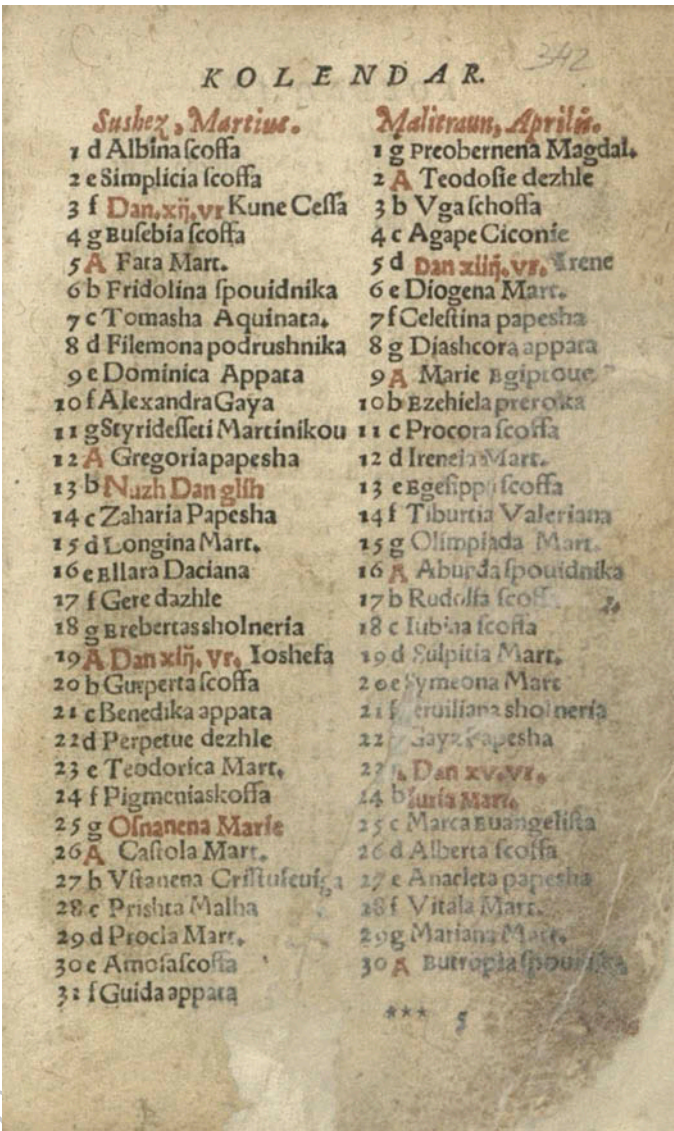 KOLENDAR.
342
Sushez, Martius.
1 d Albina ſcoffa
2 e Simplicia ſcoffa
3 f Dan. xij. vr Kune Ceſſa
4 g Euſebia ſcoffa
5 A Fata Mart.
6 b Fridolina ſpouidnika
7 c Tomasha Aquinata.
8 d Filemona podrushnika
9 e Dominica Appata
10 f Alexandra Gaya
11 g Styrideſſeti Martinikou
12 A Gregoria papesha
13 b Nuzh Dan glih
14 c Zaharia Papesha
15 d Longina Mart.
16 e Ellara Daciana
17 f Gere dazhle
18 g Erebertas sholneria
19 A Dan xiij. vr. Ioshefa
20 b Gurperta ſcoffa
21 c Benedika appata
22 d Perpetue dezhle
23 e Teodorica Mart.
24 f Pigmenia skoffa
25 g Oſnanena Marie
26 A Caſtola Mart.
27 b Vſtanena
28 c Prishta Malha
29 d Procla Mart.
30 e Amoſa ſcoffa
31 f Guida appata
Malitraun, Aprilis.
1 g Preobernena Magdal.
2 A Teodoſie dezhle
3 b Vga ſchoffa
4 c Agape Cionie
5 d Dan xiiij. vr. Irene
6 e Diogena Mart.
7 f Celeſtina papesha
8 g Diashcora appata
9 A Marie
10 b Ezehiela preroka
11 c Procora ſcoffa
12 d Mart.
13 e Egeſippa ſcoffa
14 f Tiburtia Valeriana
15 g Olimpiada Mart.
16 A Aburda ſpouidnika
17 b Rudolfa
18 c Iubina ſcoffa
19 d Sulpitia Mart.
20 e Symeona Mart
21 f sholneria
22 Gaya Papesha
23 Dan xv. vr.
24 b Iuria Mart.
25 c Marca Euangeliſta
26 d Alberta ſcoffa
27 e Anacleta papesha
28 f Vitala Mart.
29 g Mariana Mart.
30 A Eutropia
*** 5